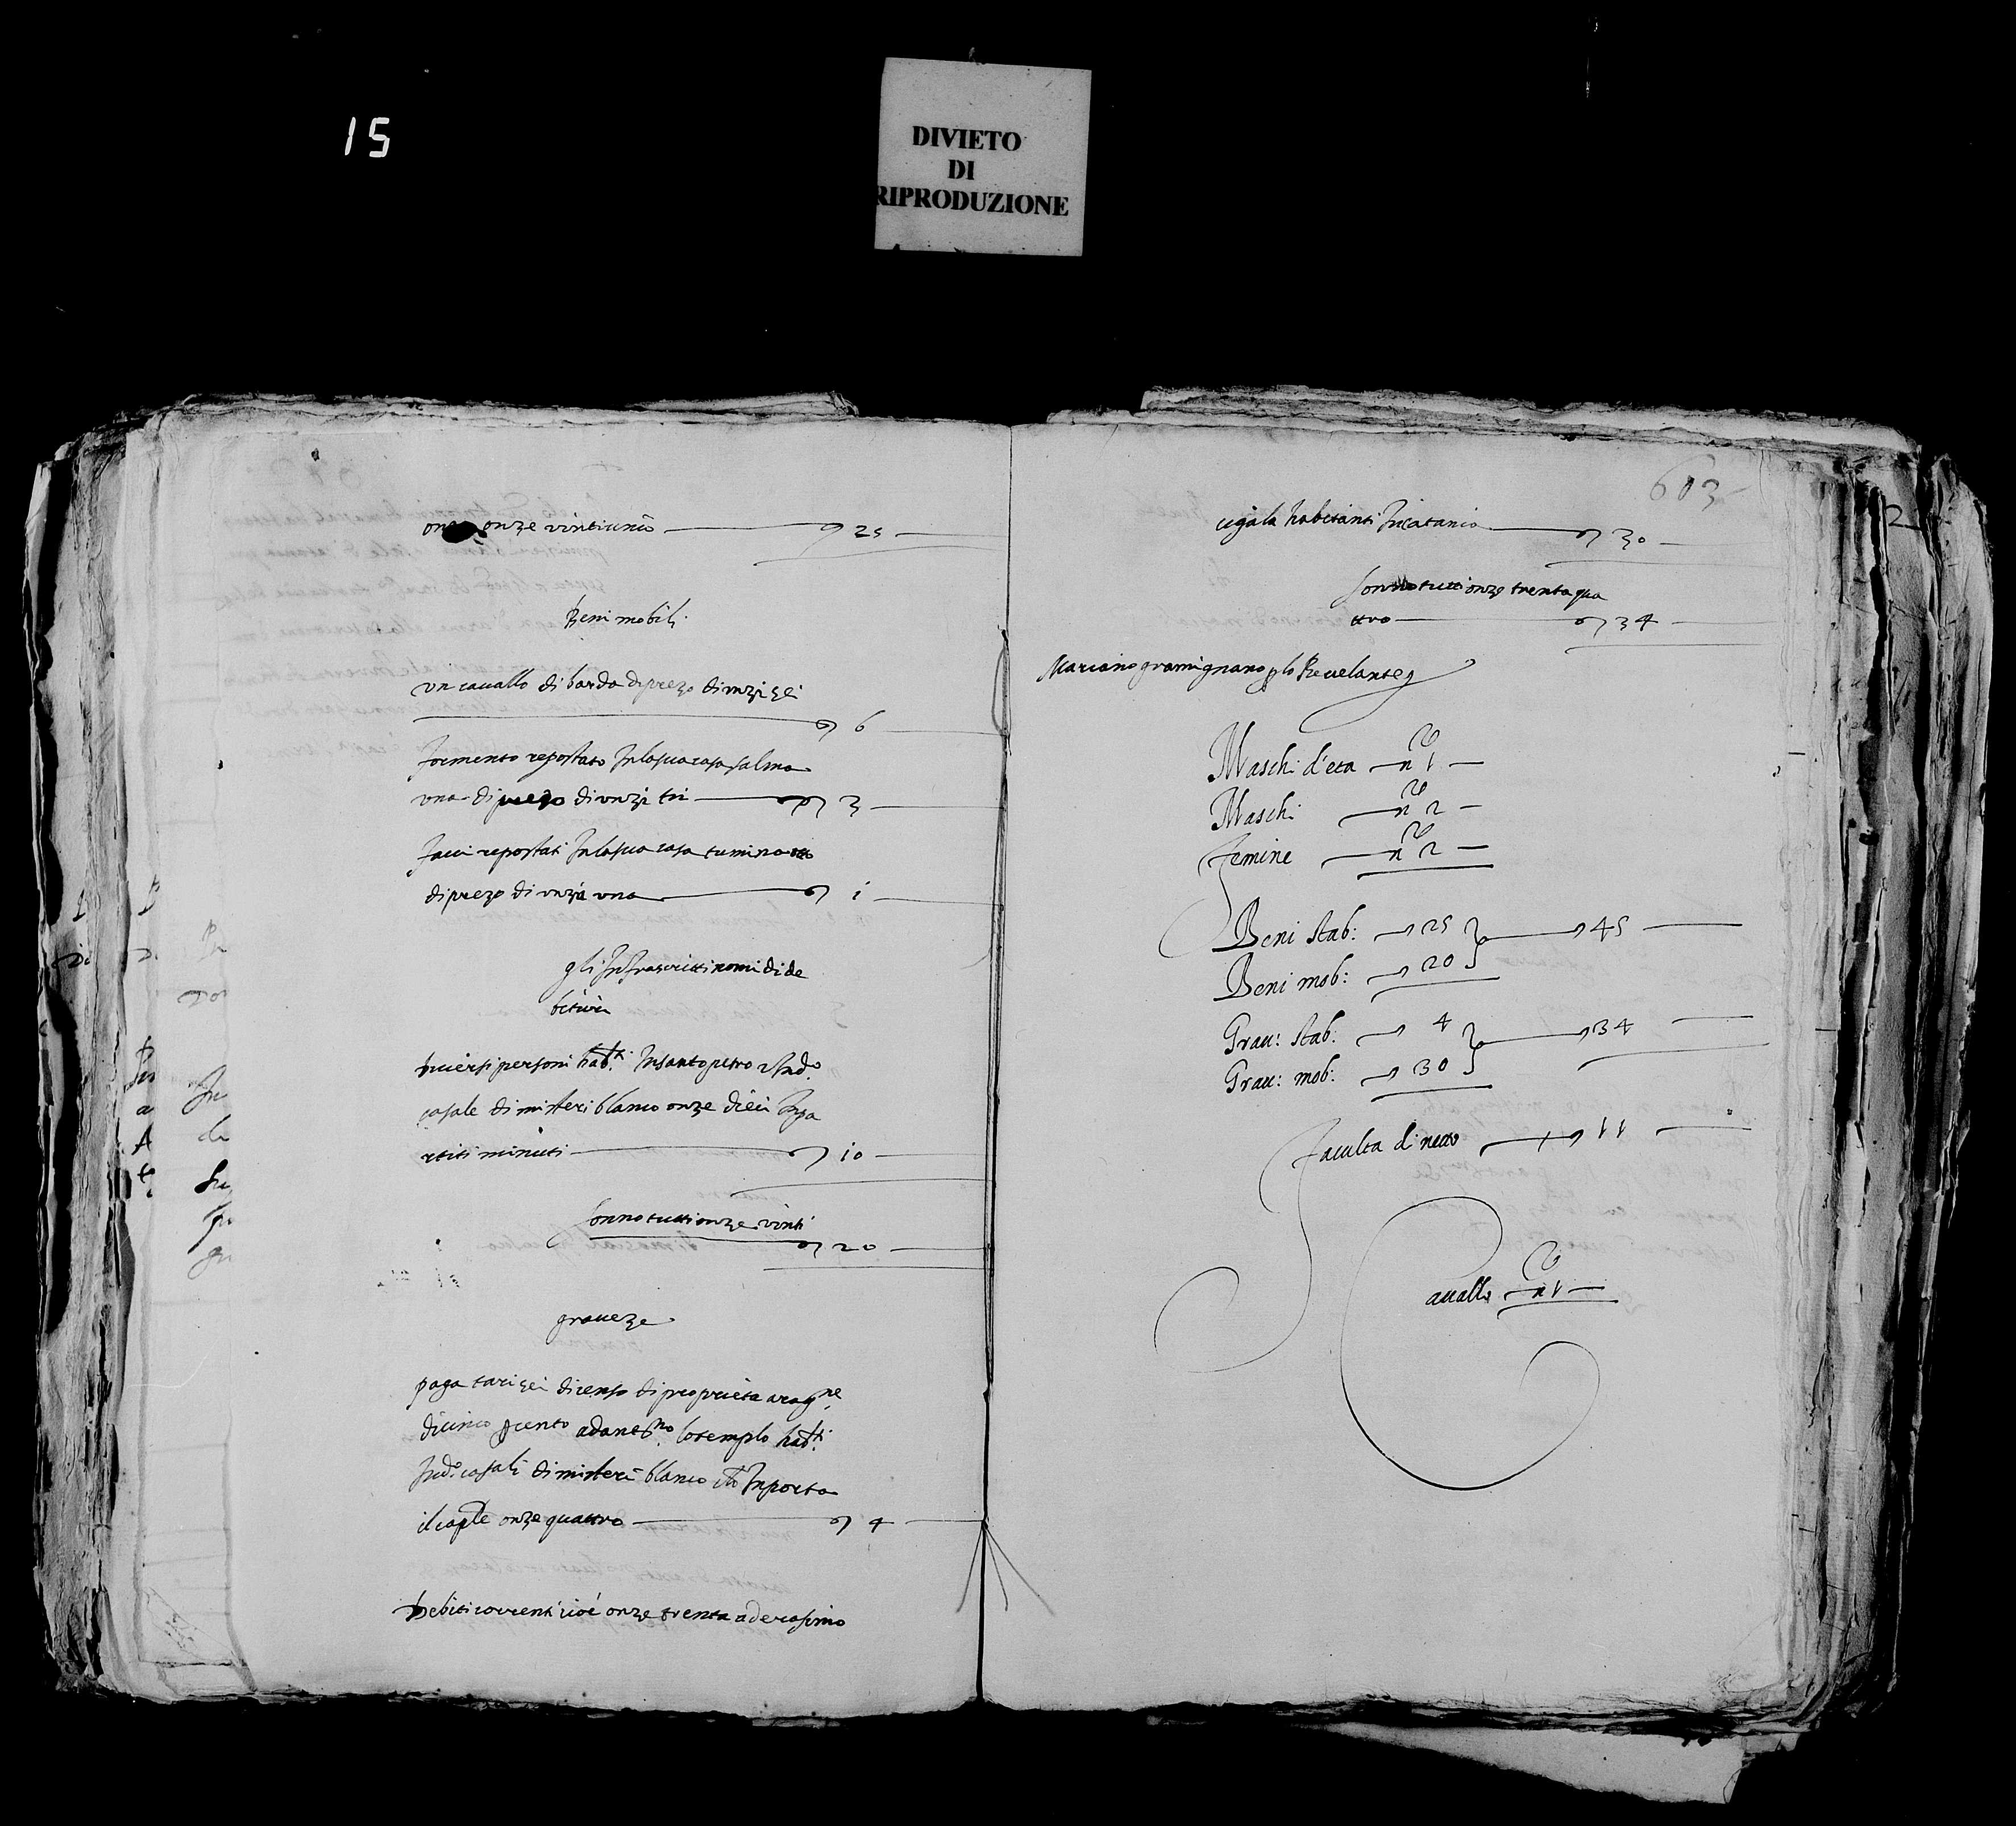 15
DIVIETO
DI
RIPRODUZIONE
onze vinticinco 25
Beni mobili
un cavallo di barda di prezo di unzi sei
6
formento repostato In la sua casa salma
una di prezo di unzi tri 3
favi repostati In la sua casa tumina otto
di prezo di unzia una 1
gli Infrascritti nomi di de
bituri
Diversi personi hab.ti In santo petro et In d.o
casale di misteri blanco onze dieci In pa
rtiti minuti 10
sonno tutti onze vinti
20
graveze
paga tari sei di censo di proprieta a rag.ne
di cinco per cento ad lo templo hab.ti
In d.o casali di misteri blanco Inporta
il cap.le onze quattro 4
Debiti correnti cioè onze trenta ad erasimo
603
cigala habitanti In catania 30
sonno tutti onze trenta qua
ttro 34
Mariano gramignano p lo Revelante
Maschi d'eta n 1
Maschi n 2
Femine n 2
Beni stab: 25 45
Beni mob: 20
Grav: stab: 4 34
Grav: mob: 30
Faculta di netto 11
Cavallo n 1